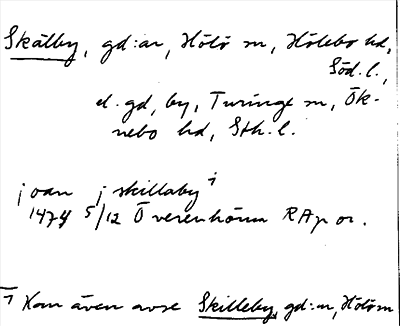 Skälby, gd:ar, Hölö sn, Hölebo hd,
Söd. l.,
el. gd, by, Turinge sn, Ök-
nebo hd, Sth. l.
joan j skillaby ¹⁾
1474 5/12 Överenhörna RAp or.
¹⁾ Kan även avse Skilleby, gd:ar, Hölö sn